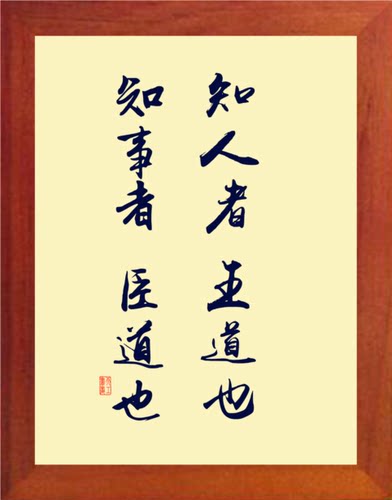 知人者 王道也
知事者 臣道也